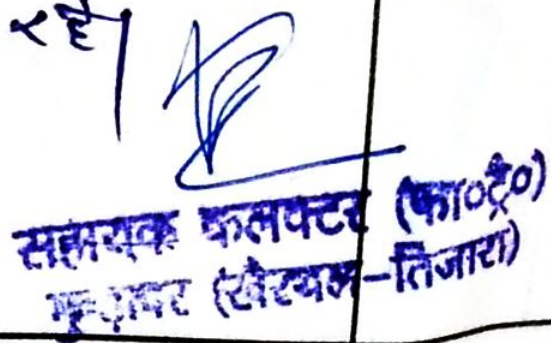 रहे।
सहायक कलक्टर (फा०ट्रै०)
मुण्डावर (खैरथल-तिजारा)